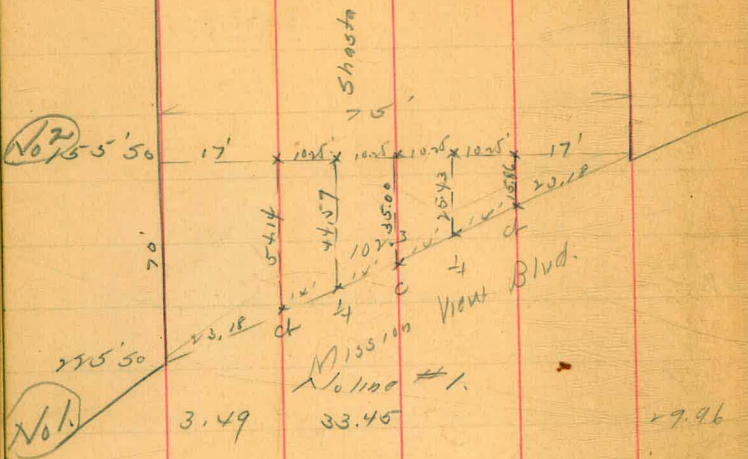 Shasta
75'
No 2
155'50
17' 10.25' 10.25' 10.25' 10.25' 17'
70'
54.14 44.57 35.00 25.43 15.86
23.18 14' 14' 14' 14' 23.18
102.3
CL 1/4 C 1/4 CL
225'50
Mission View Blvd.
No line #1.
No 1.
3.49 33.45 29.96